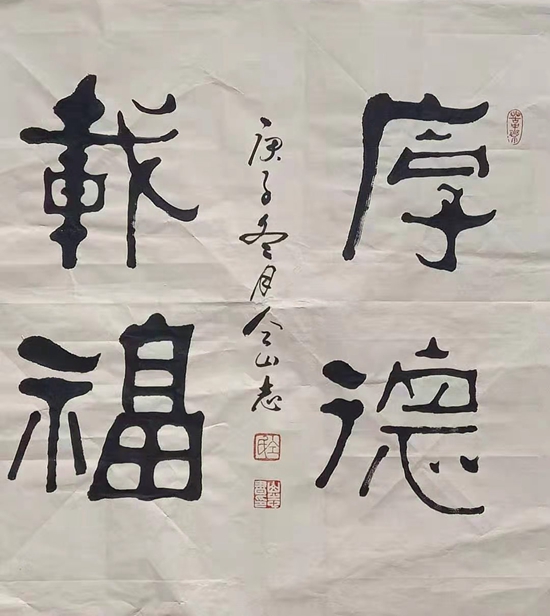 厚德
载福
庚子冬月仝山志